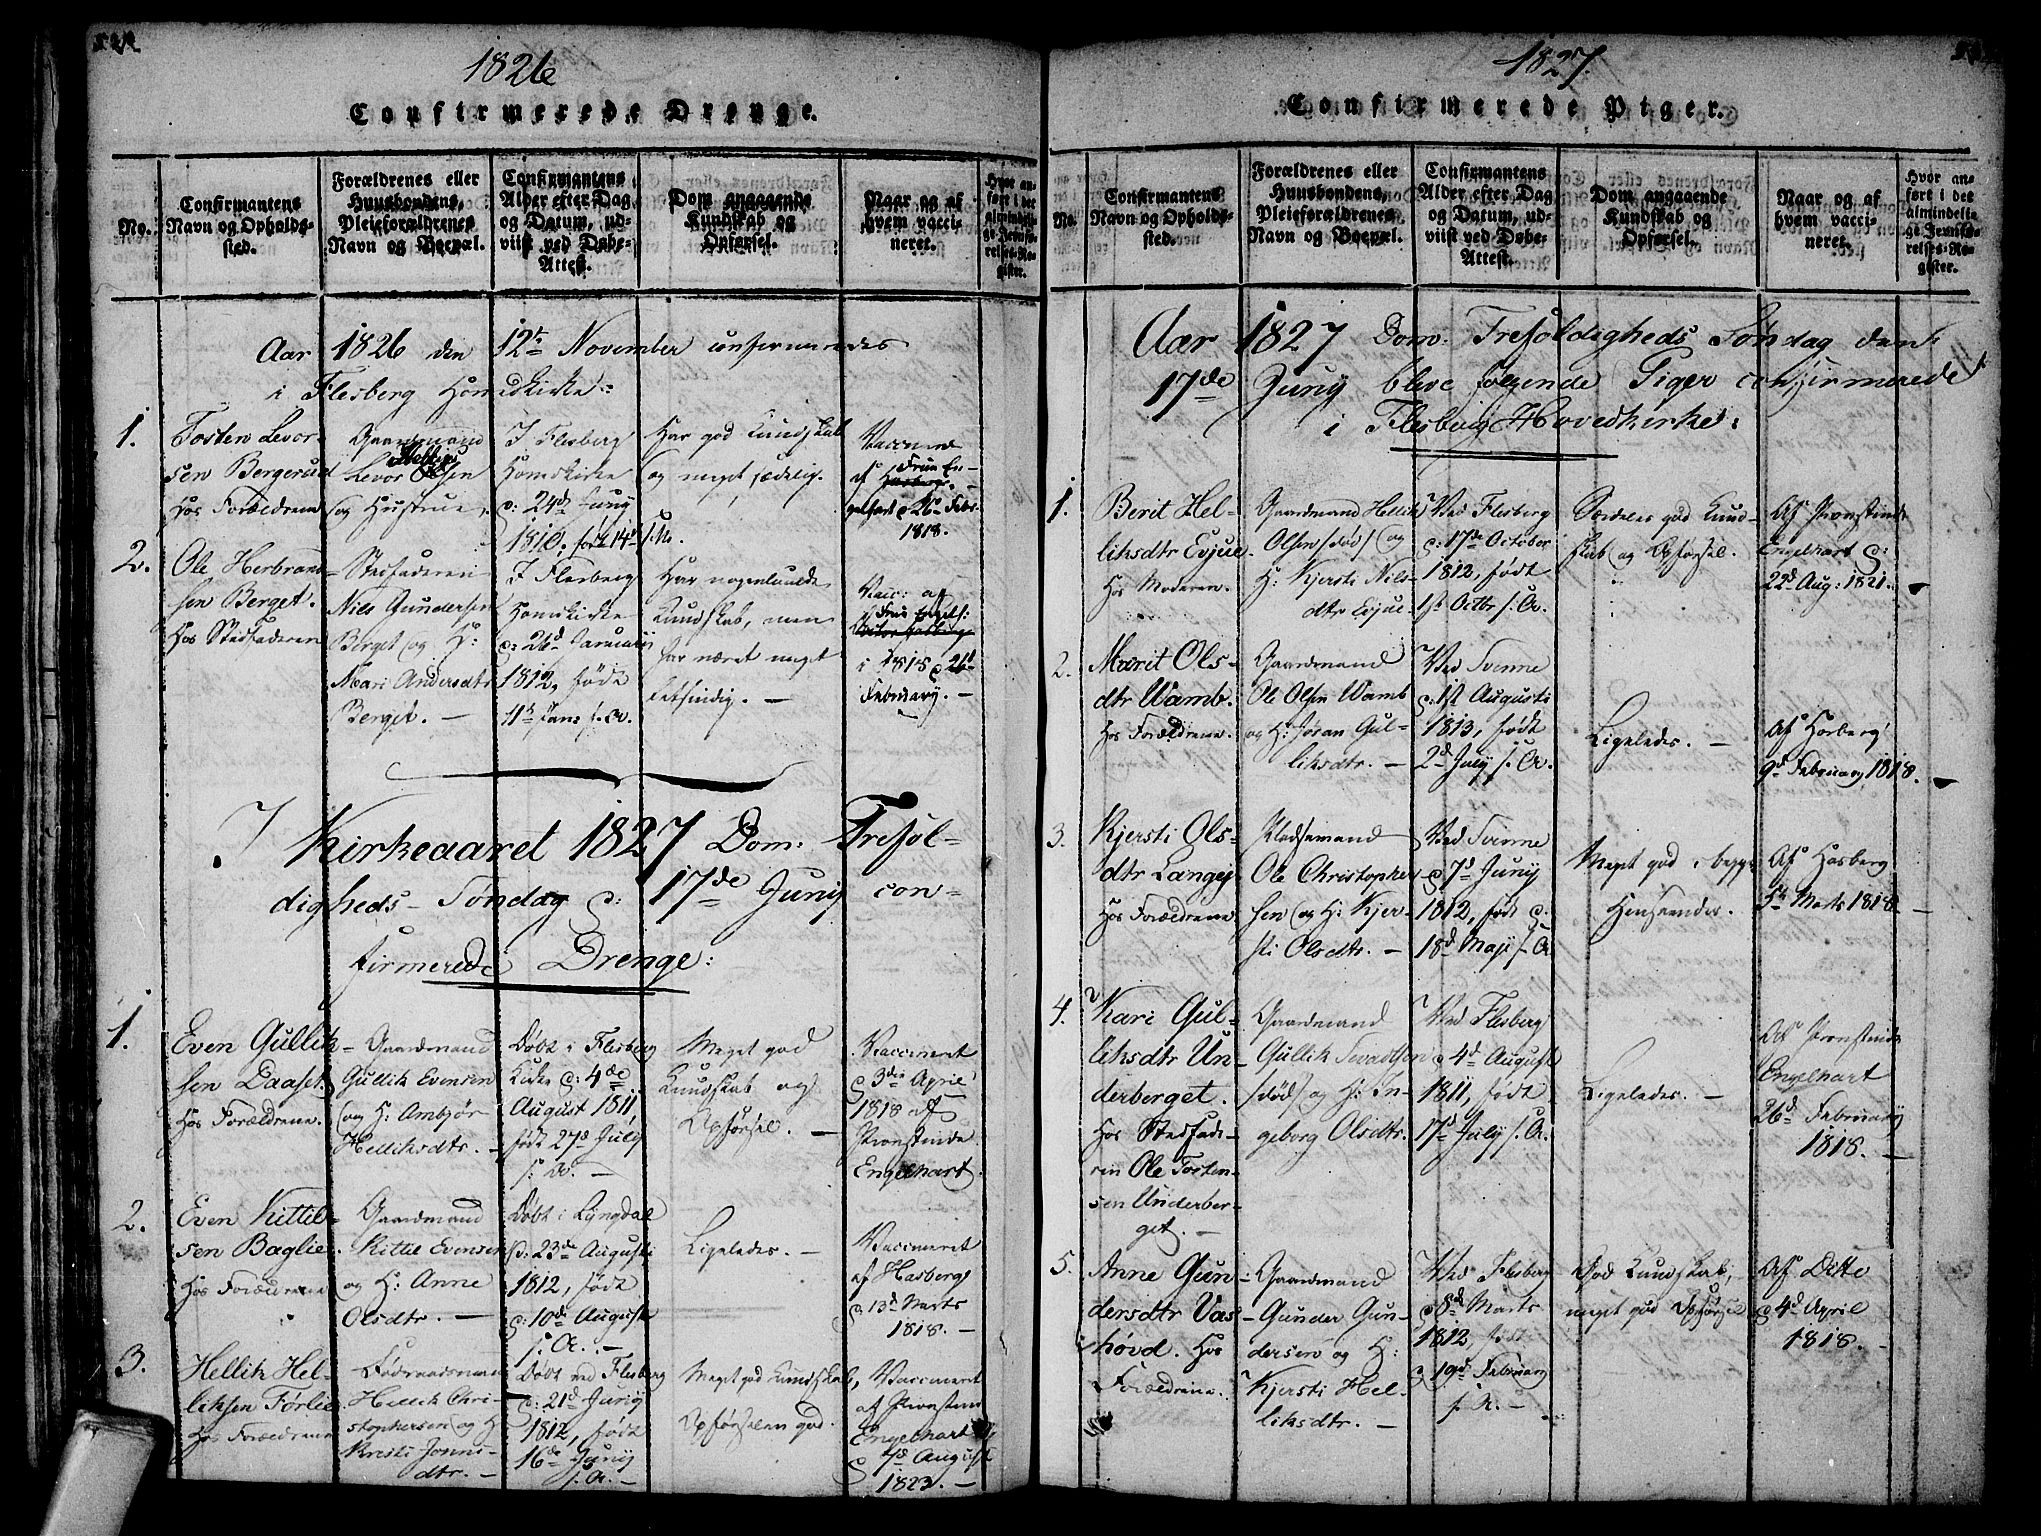 1826
Confirmerede Drenge.
No.
Confirmantens
Navn og Opholds-
sted.
Forældrenes eller
Huusbondens,
Pleieforældrenes
Navn og Boepæl.
Confirmantens
Alder efter Dag
og Datum, ud-
viist ved Døbe-
Attest.
Dom angaaende
Kundskab og
Opførsel.
Naar og af
hvem vacci-
neret.
Hvor an-
ført i det
almindeli-
ge Jevnfø-
relses-Re-
gister.
Aar 1826 den 12te November confirmeredes
i Flesberg Hovedkirke:
1.
Tosten Levor-
sen Bergerud
Hos Forældrene
Gaardmand
Levor Olsen
og Hustrue,
I Flesberg
Hovedkirke
d: 24de Juny
1810, født 14d s. M.
Har god Kundskab
og meget sædelig.
Vaccineret
af Frue En-
gelhart d 26 Febr.
1818.
2.
Ole Herbrand-
sen Berget.
Hos Stedfaderen
Stedfaderen
Nils Gundersen
Berget og H:
Mari Andersdtr
Berget. -
I Flesberg
Hovedkirke
d: 26d Januarii
1812, født
11te Jan: s. A.
Har nogenlunde
Kundskab, men
har været meget
letsindig. -
Vacc: af
Frue Engelh:
i 1818 d 26d
February. -
I Kirkeaaret 1827 Dom: Trefol-
digheds-Søndag d: 17de Juny con-
firmerede Drenge:
1.
Even Gullik-
sen Daaset.
Hos Forældrene.
Gaardmand
Gullik Evensen
og H: Ambjør
Helliksdtr. -
Døbt i Flesberg
Kirke d: 4de
August 1811,
født 27d July
s. A. -
Meget god
Kundskab og
Opførsel. -
Vaccineret
d 3die April
1818 af
Provstinde
Engelhart.
2.
Even Kittil-
sen Baglie.
Hos Forældrene
Gaardmand
Kittil Evensen
og H: Anne
Olsdtr. -
Døbt i Lyngdal
d: 23de Augusti
1812, født
d: 10de August
s. A. -
Ligeledes. -
Vaccineret
af Hasberg
d 13d Marts
1818. -
3.
Hellik Hel-
liksen Førlie
Hos Forældrene
Føderaadsmand
Hellik Chri-
stophersen og H
Kristi Jons-
dtr. -
Døbt ved Flesberg
d: 21d Juny
1812, født
16de Juny
s. A. -
Meget god Kundskab,
Opførselen god.
Vaccineret
af Provstinde
Engelhart
d 7d August
1823. -
1827.
Confirmerede Piger.
No.
Confirmantens
Navn og Opholds-
sted.
Forældrenes eller
Huusbondens,
Pleieforældrenes
Navn og Boepæl.
Confirmantens
Alder efter Dag
og Datum, ud-
viist ved Døbe-
Attest.
Dom angaaende
Kundskab og
Opførsel.
Naar og af
hvem vacci-
neret.
Hvor an-
ført i det
almindeli-
ge Jevnfø-
relses-Re-
gister.
Aar 1827 Dom: Trefoldigheds Søndag den
17de Juny bleve følgende Piger confirmerede
i Flesberg Hovedkirke:
1.
Berit Hel-
liksdtr Evjue.
Hos Moderen.
Gaardmand Hellik
Olsen /død/ og
H: Kjersti Nils-
dtr Evjue.
Ved Flesberg
d: 17de October
1812, født
1st Octbr s. A.
Særdeles god Kund-
skab og Opførsel.
Af Provstinde
Engelhart d:
22d Aug: 1821. -
2.
Marit Ols-
dtr Wamb.
Hos Forældrene.
Gaardmand
Ole Olsen Wamb
og H: Jøran Gul-
liksdtr. -
Ved Svenne
d: 1st Augusti
1813, født
2d July s. A.
Ligeledes. -
Af Hasberg
9d February 1818. -
3.
Kjersti Ols-
dtr Langej
Hos Forældrene
Pladsemand
Ole Christopher-
sen og H: Kjer-
sti Olsdtr. -
Ved Svenne
d 7d Juny
1812, født d:
18d Maji s. A
Meget god i begge
Henseender.
Af Hasberg
5te Marts 1818 -
4.
Kari Gul-
liksdtr Un-
derberget.
Hos Stedfade-
ren Ole Tosten-
sen Underber-
get. -
Gaardmand
Gullik Tevadtsen
/død/ og H: In-
geborg Olsdtr.
Ved Flesberg
d 4d August
1811, født
17d July s. A.
Ligeledes. -
Af Provstinde
Engelhart
26d February
1818. -
5.
Anne Gun-
dersdtr Vas-
høvd. Hos
Forældrene.
Gaardmand
Gunder Gun-
dersen og H:
Kjersti Hel-
liksdtr. -
Ved Flesberg
d 8d Marts
1812 født
d 19d February
s. A. -
God Kundskab,
meget god Opførsel
Af Ditto
d 4d April
1818. -